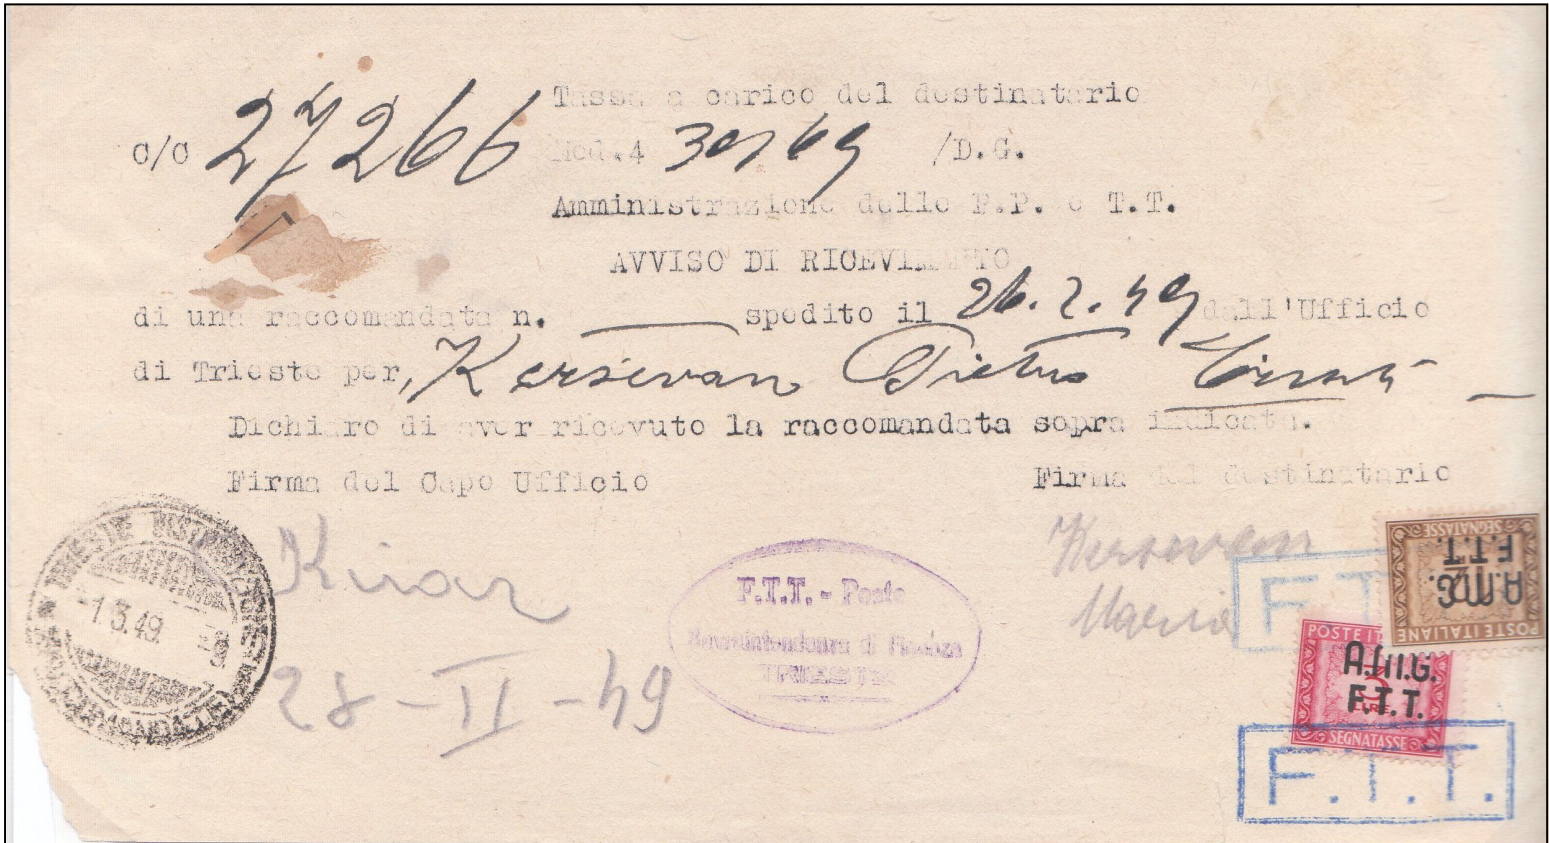 Tassa a carico del destinatario
C/C 27266 Mod.4 /D.G.
Amministrazione delle P.P. e T.T.
AVVISO DI RICEVIMENTO
di una raccomandata n. spedito il 26.2.49 dall'Ufficio
di Trieste per, Kersevan Pietro
Dichiaro di aver ricevuto la raccomandata sopra indicata.
Firma del Capo Ufficio Firma del destinatario
TRIESTE
-1.3.49.
28-II-49
F.T.T. - Poste
di Finanza
TRIESTE
Kersevan
Maria
SEGNATASSE
A.M.G.
F.T.T.
POSTE ITALIANE
F.T.
POSTE IT
A.M.G.
F.T.T.
LIRE
SEGNATASSE
F.T.T.